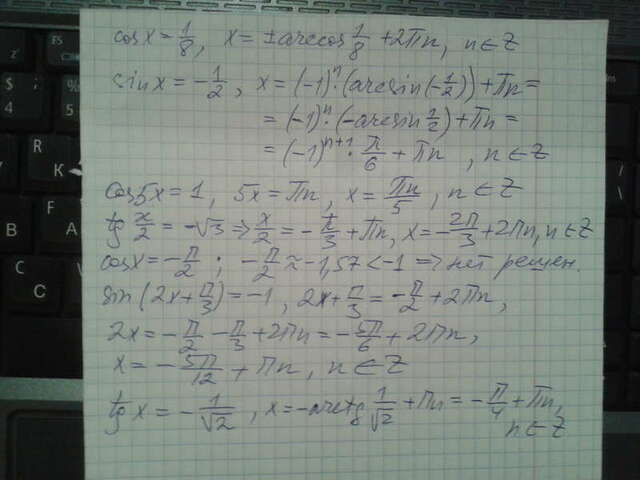 cosx = 1/8, x = ±arccos 1/8 + 2πn, n ∈ Z
sin x = -1/2, x = (-1)^n·(arcsin(-1/2)) + πn =
= (-1)^n·(-arcsin 1/2) + πn =
= (-1)^(n+1)·π/6 + πn, n ∈ Z
cos5x = 1, 5x = πn, x = πn/5, n ∈ Z
tg x/2 = -√3 => x/2 = -π/3 + πn, x = -2π/3 + 2πn, n ∈ Z
cosx = -π/2; -π/2 ≈ -1,57 < -1 => нет решен.
sin(2x + π/3) = -1, 2x + π/3 = -π/2 + 2πn,
2x = -π/2 - π/3 + 2πn = -5π/6 + 2πn,
x = -5π/12 + πn, n ∈ Z
tg x = -1/√2, x = -arctg 1/√2 + πn = -π/4 + πn,
n ∈ Z